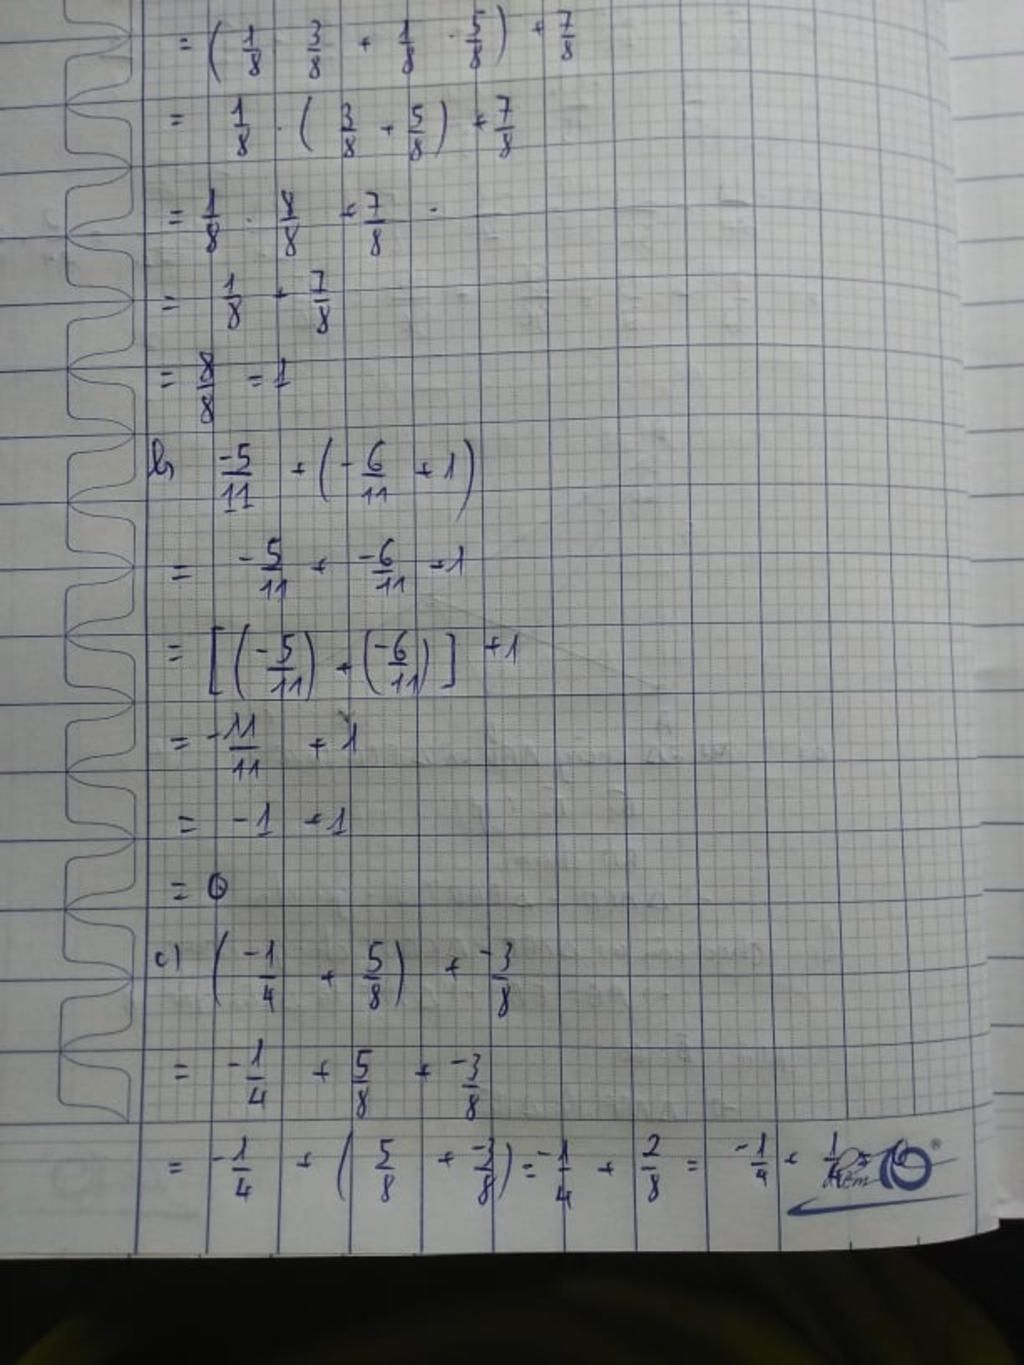 = ( 1/8 · 3/8 + 1/8 · 5/8 ) + 7/8
= 1/8 · ( 3/8 + 5/8 ) + 7/8
= 1/8 · 8/8 + 7/8
= 1/8 + 7/8
= 8/8 = 1
b) -5/11 + ( -6/11 + 1 )
= -5/11 + -6/11 + 1
= [ ( -5/11 ) + ( -6/11 ) ] + 1
= -11/11 + 1
= -1 + 1
= 0
c) ( -1/4 + 5/8 ) + -3/8
= -1/4 + 5/8 + -3/8
= -1/4 + ( 5/8 + -3/8 ) = -1/4 + 2/8 = -1/4 + 1/4 = 0